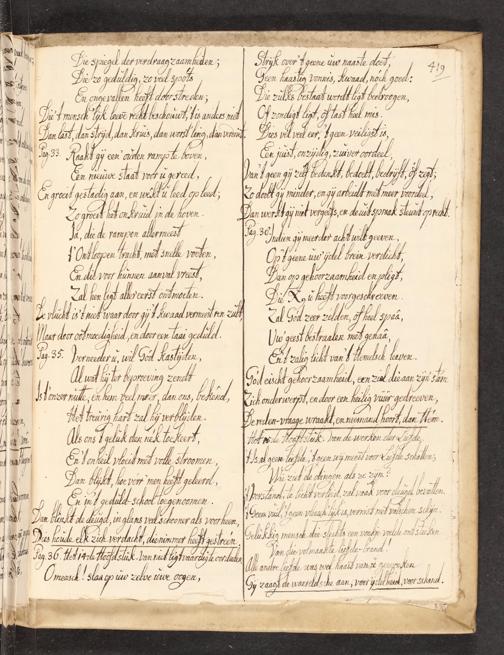 Die spiegel der verdraagzaamheden;
Die zo geduldig, zo veel spots
En ongevallen heeft doorstreeden;
Die 't mensch'lijk leeve recht beschouwt, 't is anders niet
Dan last, dan strijd, dan kruis, dan worst'ling, dan verdriet.
Pag: 33. Raakt gy een' ouden ramp te boven,
Een nieuwe staat voor u gereed,
En groeit gestadig aan, en wekt u leed op leed;
Zo groeit het onkruid in de hoven.
Ja, die de rampen allermeest
t' Ontloopen tracht, met snelle voeten,
En die voor hunnen aanval vreest,
Zal hen ligt aller eerst ontmoeten.
De vlucht is 't niet waar door gij 't kwaad vermeert en zult,
Maar door ootmoedigheid, en door een taai geduld.
Pag: 35. Verneeder u, wil God kastijden,
Al wat hij ter beproeving zendt
Is t'onser nutte, en hem veel meer, dan ons, bekend,
Het treurig hart zal hij verblijden.
Als ons 't geluk den nek toekeert,
En 't onheil vloeit met volle stroomen,
Dan blijkt, hoe ver' men heeft geleerd,
En in 't geduld-school toegenoomen.
Dan blinkt de deugd, in glans veel schooner als voorheen,
Dies houde elk zich verdacht, die nimmer heeft gestreên.
Pag: 36. Het 14de Hoofdstuk. van niet ligtvaardig te oordeelen
O mensch! slaa op uw' zelve uwe oogen,
419
Strijk over 't geene uw naaste doet,
Geen haastig vonnis, kwaad, noch goed:
Die zulks bestaat werdt ligt bedroogen,
Of zondigt ligt, of tast heel mis.
Dies vel veel eer, 't geen veiligst is,
Een juist, onzijdig, zuiver oordeel,
Van 't geen gij zelf bedenkt, bedoelt, bedrijft, of zegt;
Zo doolt gij minder, en gij arbeidt met meer voordeel,
Dan werkt gij niet vergeefs, en de uitspraak steunt op recht.
Pag: 36. Indien gij meerder acht wilt geeven,
Op 't geene uw ijdel brein verdicht,
Dan op gehoorzaamheid en pligt,
Die u heeft voorgeschreeven.
Zal God zeer zelden, of heel spaâ,
Uw' geest bestraalen met genaâ,
En 't zalig licht van 't Hemelsch leeven.
God eischt gehoorzaamheid, een ziel die aan zijn stem
Zich onderwerpt, en door een heilig vuur gedreeven,
De reden-vraage wraakt, en niemand hoort, dan Hem.
Het 15de Hoofdstuk. van de werken der Liefde.
't Is al geen liefde, 't geen wij meest voor Liefde schatten;
Wie ziet de dingen als ze zijn?
Geen vuil, 't geen vraagt'lijk is, vermist met valschen schijn.
Gelukkig mensch die slechts een vonkje voelde ontsteeken
Van die volmaakte liefde-brand.
Alle andre liefde was wel haast van u geweeken
Gij zaagt de waereldsche aan, voor ijdelheid, voor schand.